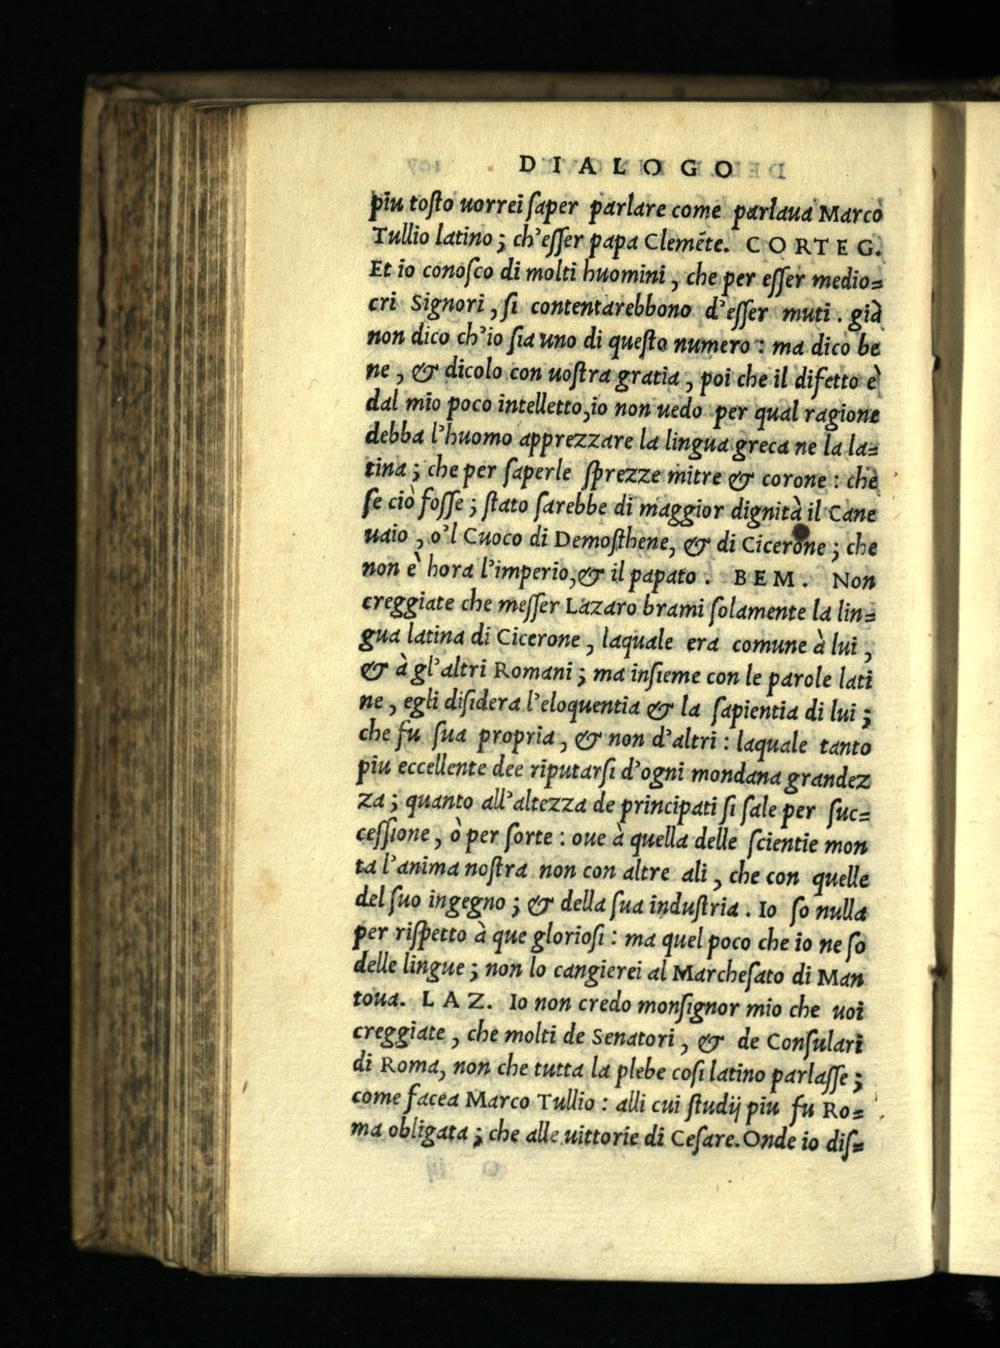 DIALOGO
piu tosto uorrei saper parlare come parlaua Marco
Tullio latino; ch'esser papa Clemẽte. CORTEG.
Et io conosco di molti huomini, che per esser medio=
cri Signori, si contentarebbono d'esser muti. già
non dico ch'io sia uno di questo numero: ma dico be
ne, & dicolo con uostra gratia, poi che il difetto è
dal mio poco intelletto, io non uedo per qual ragione
debba l'huomo apprezzare la lingua greca ne la la=
tina; che per saperle sprezze mitre & corone: che
se ciò fosse; stato sarebbe di maggior dignità il Cane
uaio, o'l Cuoco di Demosthene, & di Cicerone; che
non è hora l'imperio, & il papato. BEM. Non
creggiate che messer Lazaro brami solamente la lin=
gua latina di Cicerone, laquale era comune à lui,
& à gl'altri Romani; ma insieme con le parole lati
ne, egli disidera l'eloquentia & la sapientia di lui;
che fu sua propria, & non d'altri: laquale tanto
piu eccellente dee riputarsi d'ogni mondana grandez
za; quanto all'altezza de principati si sale per suc=
cessione, ò per sorte: oue à quella delle scientie mon
ta l'anima nostra non con altre ali, che con quelle
del suo ingegno; & della sua industria. Io so nulla
per rispetto à que gloriosi: ma quel poco che io ne so
delle lingue; non lo cangierei al Marchesato di Man
toua. LAZ. Io non credo monsignor mio che uoi
creggiate, che molti de Senatori, & de Consulari
di Roma, non che tutta la plebe cosi latino parlasse;
come facea Marco Tullio: alli cui studij piu fu Ro=
ma obligata; che alle uittorie di Cesare. Onde io dis=